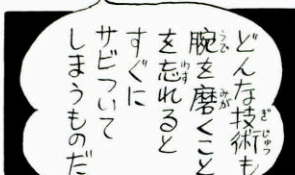 どんな技術も
腕を磨くこと
を忘れると
すぐに
サビついて
しまうものだ